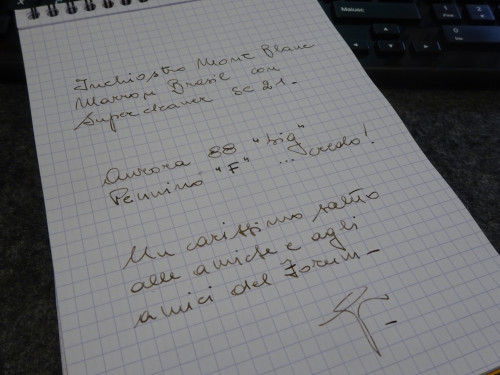 Inchiostro Mont Blanc
Marron Brasil con
Supercleaner SC 21.
Aurora 88 "big"
Pennino "F" ... credo!
Un carissimo saluto
alle amiche e agli
amici del Forum